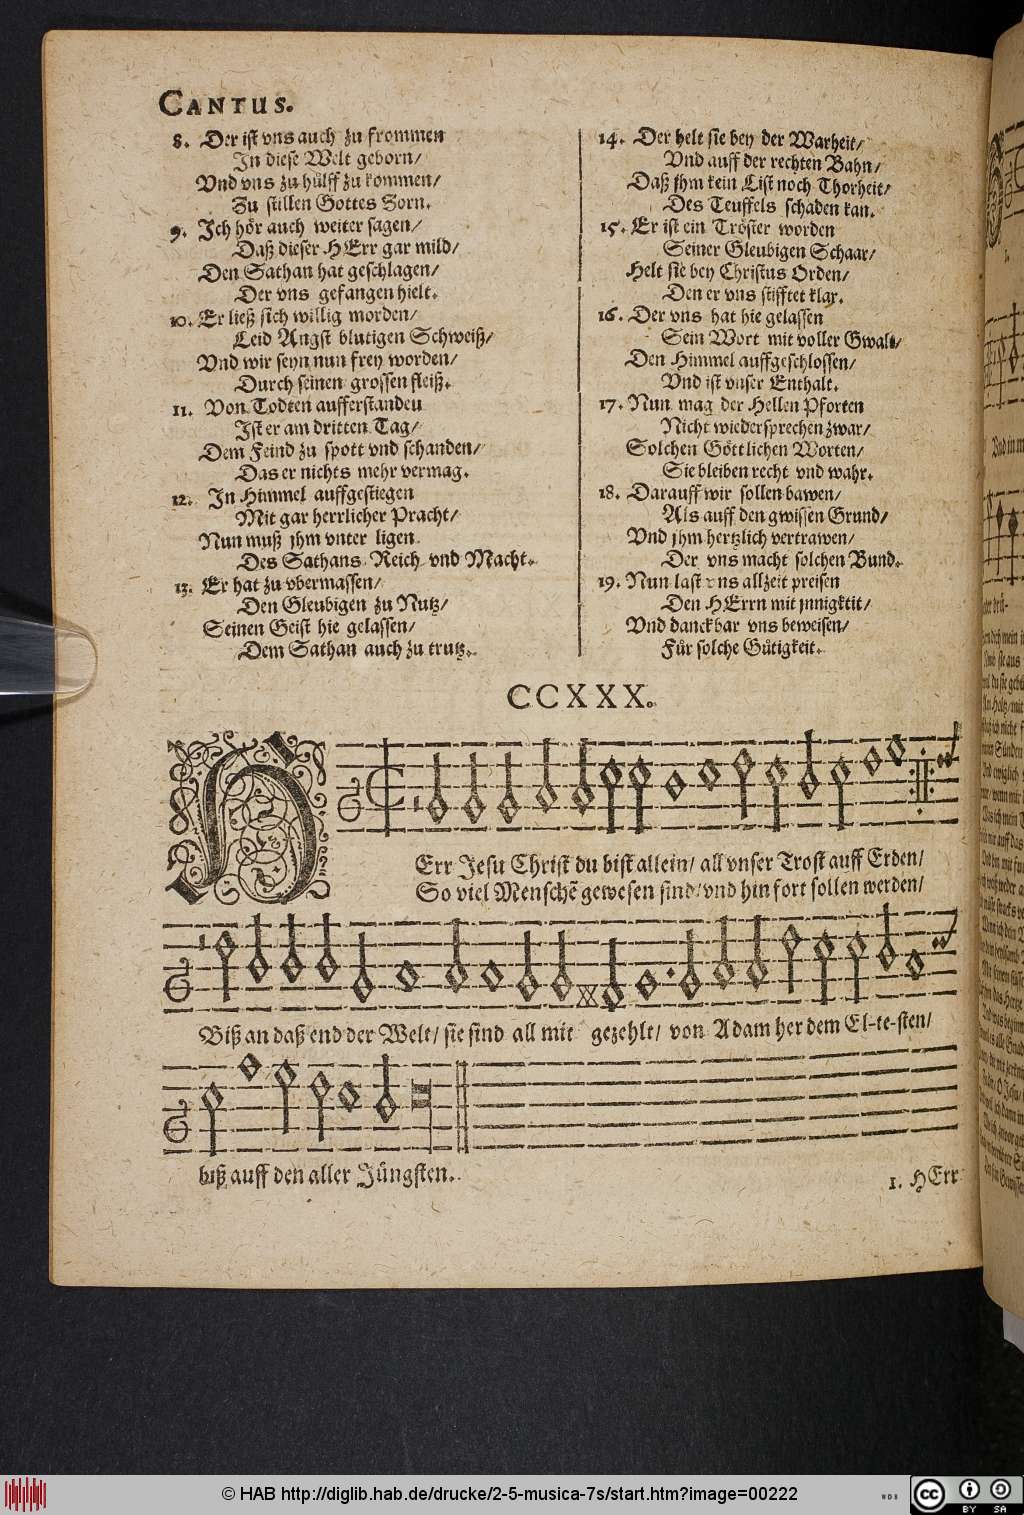 CANTUS.
8. Der ist vns auch zu frommen
In diese Welt geborn/
Vnd vns zu hülff zu kommen/
Zu stillen Gottes Zorn.
9. Ich hör auch weiter sagen/
Daß dieser HErr gar mild/
Den Sathan hat geschlagen/
Der vns gefangen hielt.
10. Er ließ sich willig morden/
Leid Angst blutigen Schweiß/
Vnd wir seyn nun frey worden/
Durch seinen grossen fleiß.
11. Von Todten aufferstanden
Ist er am dritten Tag/
Dem Feind zu spott vnd schanden/
Das er nichts mehr vermag.
12. In Himmel auffgestiegen
Mit gar herrlicher Pracht/
Nun muß jhm vnter ligen
Des Sathans Reich vnd Macht.
13. Er hat zu vbermassen/
Den Gleubigen zu Nutz/
Seinen Geist hie gelassen/
Dem Sathan auch zu trutz.
14. Der helt sie bey der Warheit/
Vnd auff der rechten Bahn/
Daß jhm kein List noch Thorheit/
Des Teuffels schaden kan.
15. Er ist ein Tröster worden
Seiner Gleubigen Schaar/
Helt sie bey Christus Orden/
Den er vns stifftet klar.
16. Der vns hat hie gelassen
Sein Wort mit voller Gwalt/
Den Himmel auffgeschlossen/
Vnd ist vnser Enthalt.
17. Nun mag der Hellen Pforten
Nicht wiedersprechen zwar/
Solchen Göttlichen Worten/
Sie bleiben recht vnd wahr.
18. Darauff wir sollen bawen/
Als auff den gwissen Grund/
Vnd jhm hertzlich vertrawen/
Der vns macht solchen Bund.
19. Nun last vns allzeit preisen
Den HErrn mit jnnigktit/
Vnd danckbar vns beweisen/
Für solche Gütigkeit.
CCXXX.
HErr Jesu Christ du bist allein/ all vnser Trost auff Erden/
So viel Menschē gewesen sind/ vnd hin fort sollen werden/
Biß an daß end der Welt/ sie sind all mit gezehlt/ von Adam her dem El-te-sten/
biß auff den aller Jüngsten.
1. HErr
© HAB http://diglib.hab.de/drucke/2-5-musica-7s/start.htm?image=00222
WDB
CC BY SA